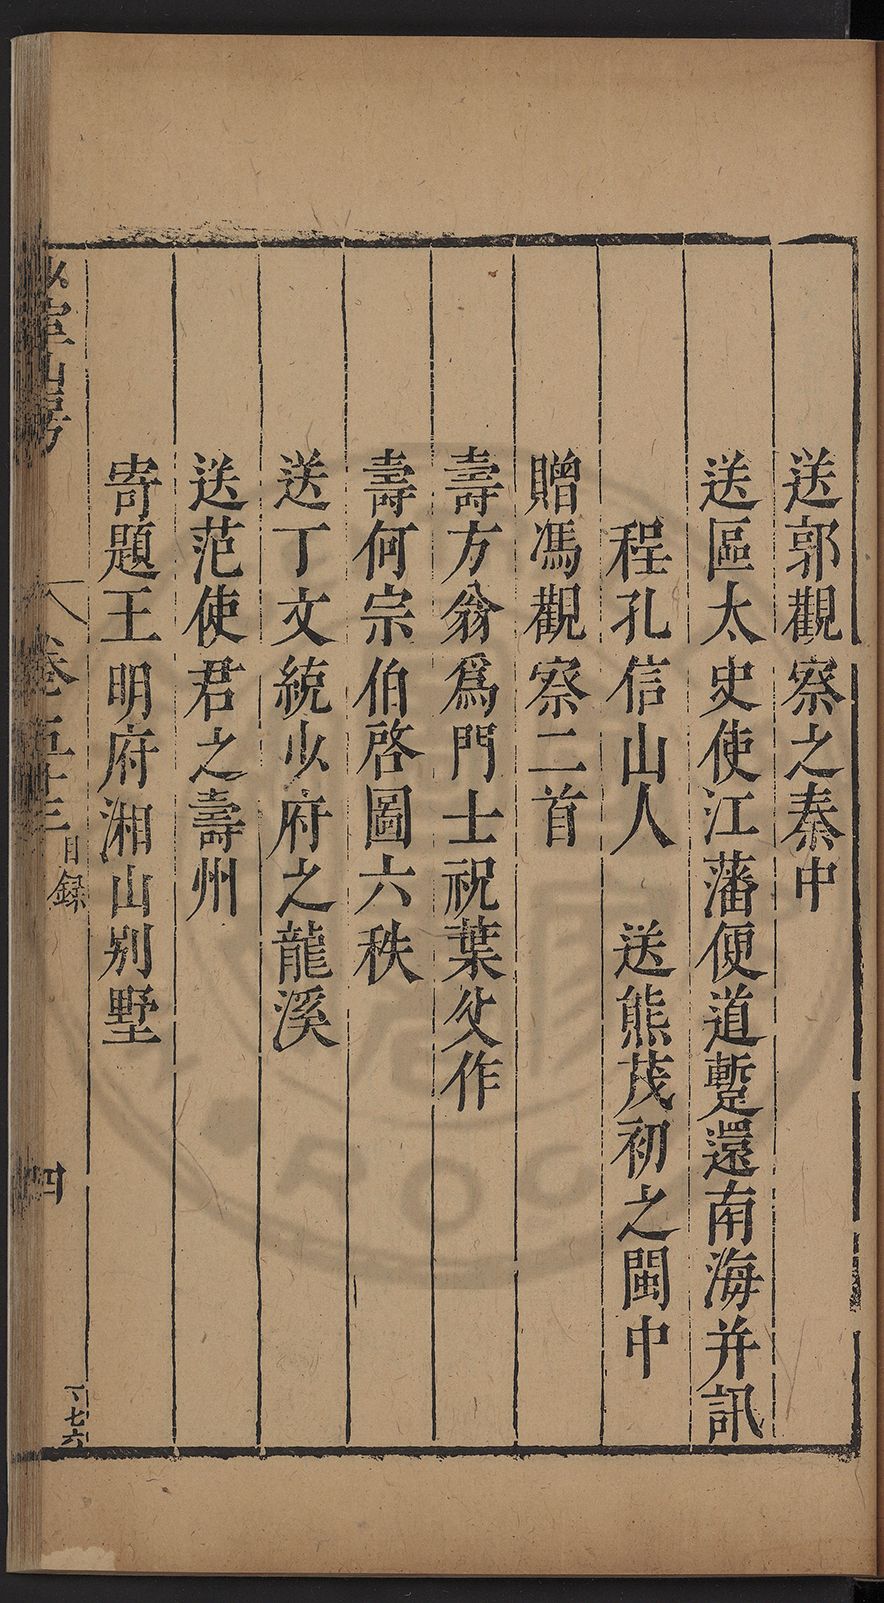 送郭觀察之秦中
送區太史使江藩便道蹔還南海并訊
程孔信山人　送熊茂初之閩中
贈馮觀察二首
壽方翁爲門士祝葉父作
壽何宗伯啓圖六秩
送丁文統少府之龍溪
送范使君之壽州
寄題王明府湘山别墅
山房
卷五十三 目録
四